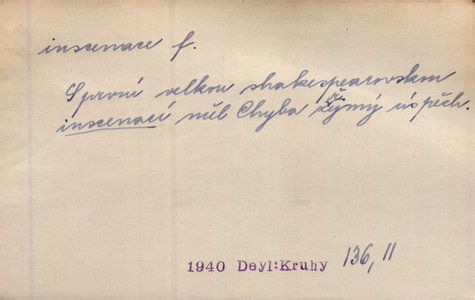 inscenace f.
S první velkou shakespearovskou
inscenací měl Chyba úspěch.
1940 Deyl:Kruhy 136, 11